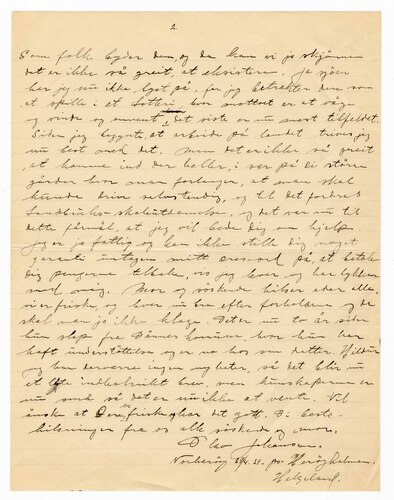 2
Som folk byder dem, og da kan vi jo skjønne
det er ikke så greit, at eksistere. Je sjøen
har jeg nu ikke lyst på, for jeg betrakter dere som
at spille i et Lotteri, hvor mottoet er at våge
og vinde og, det siste er nu mest tilfeldet.
Siden jeg begynte, at arbeide på landet trives jeg
nu best med det. Men det er ikke så greit
at komme ind der heller, i ser på de større
gårder hvor man forlanger, at man skal
kunde drive selvstendig, og til det fordres
Landbruks- og det var nu til
dette formål, at jeg vil bede dig om hjelp.
Jeg er jo fattig og kan ikke stille dig noget
garanti untagen mitt på, at betale
dig pengene tilbake, vis jeg lever og har lykken
med mig. Mor og søskende hilser eder alle,
vi er friske, og lever nu bra efter forholdene og da
skal man jo ikke klage. Det er nu to år siden
hun slap fra kommune, hvor hun har
haft understøttelse og er nu hos sin datter.
og har derværre ingen nyheter, så det blir nu
et lite indholdsrikt brev, men kunskaperne er
nu små så det er nu ikke at vente. Vil
ønske at Dere er friske og har det gott. De beste
hilsninger fra os alle søskende og mor.
Olav Johansen.
21. pr. Herøyholmen.
Helgeland.